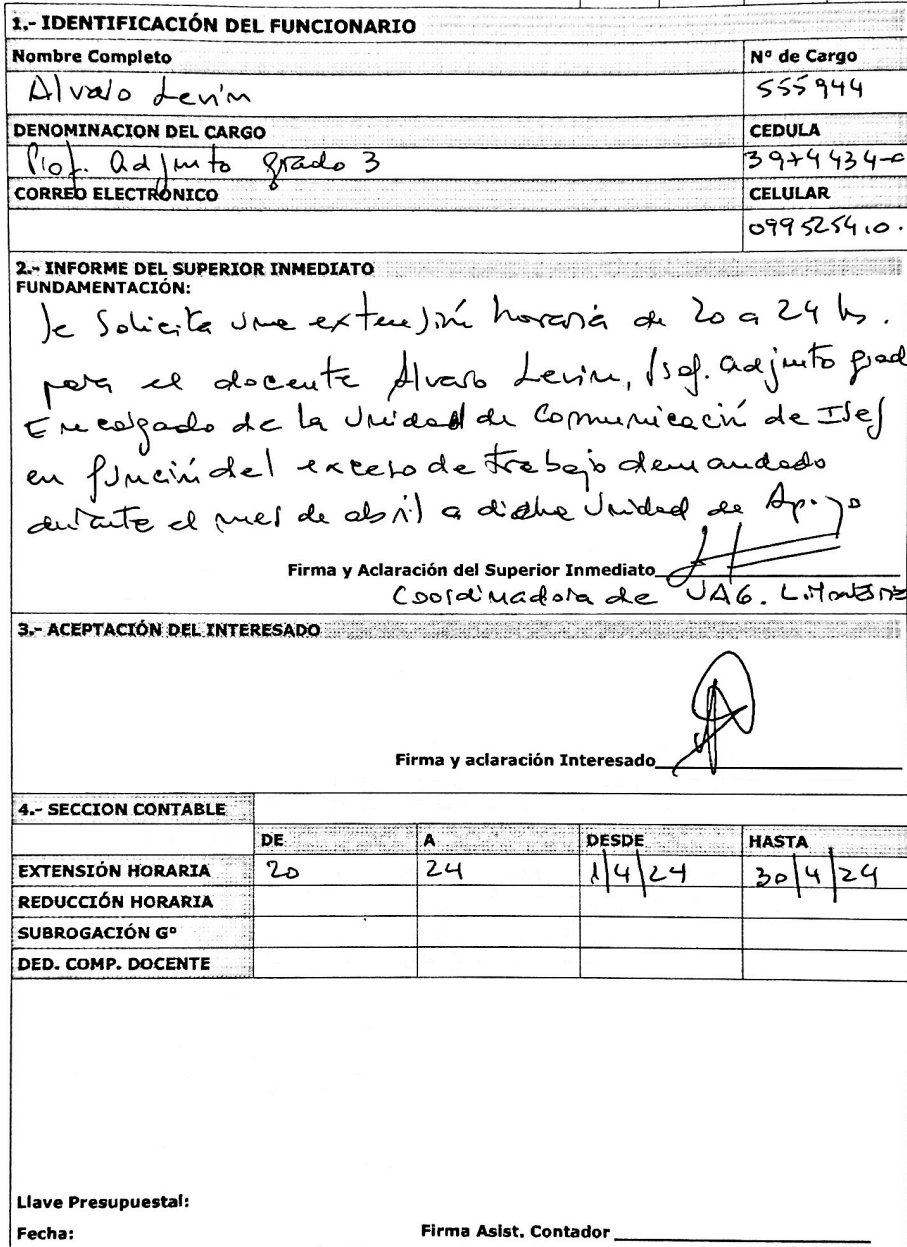 1.- IDENTIFICACIÓN DEL FUNCIONARIO
Nombre Completo Nº de Cargo
Alvaro Levin 555944
DENOMINACION DEL CARGO CEDULA
Prof. Adjunto grado 3 3974434-
CORREO ELECTRÓNICO CELULAR
099525410.
2.- INFORME DEL SUPERIOR INMEDIATO
FUNDAMENTACIÓN:
Se Solicita una extensión horaria de 20 a 24 hs.
para el docente Alvaro Levin, Prof. adjunto grad
Encargado de la Unidad de Comunicación de Isef
en función del exceso de trabajo demandado
durante el mes de abril a dicha Unidad de Apoyo
Firma y Aclaración del Superior Inmediato
Coordinadora de UAG. L.
3.- ACEPTACIÓN DEL INTERESADO
Firma y aclaración Interesado
4.- SECCION CONTABLE
DE A DESDE HASTA
EXTENSIÓN HORARIA 20 24 1/4/24 30/4/24
REDUCCIÓN HORARIA
SUBROGACIÓN Gº
DED. COMP. DOCENTE
Llave Presupuestal:
Fecha: Firma Asist. Contador